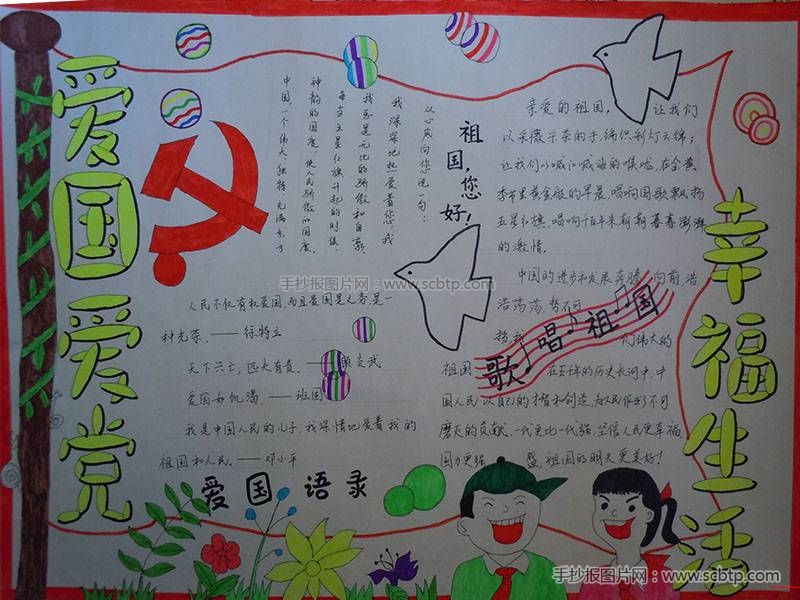 爱国爱党
中国一个伟大独特充满东方
神韵的国度，使人民骄傲和国度。
每当五星红旗升起的时候
我总是无比的骄傲和自豪
我深深地热爱着您，我
从心底向您说一句：
祖国，您好！
亲爱的祖国， 让我们
以采薇采茶的手，编织彩灯云锦；
让我们以喊江喊海的嗓咙，在金黄
季节里黄金般的早晨，唱响国歌飘扬
五星红旗，唱响千百年来朝朝暮暮澎湃
的激情。
中国的进步和发展奔腾 向前，浩
浩荡荡，势不可
挡，我 们伟大的
祖国 在五千年的历史长河中，中
国人民以自己的才智和创造，为人民作出不可
磨灭的贡献。一代更比一代强，坚信人民更幸福，
国力更强 盛，祖国的明天更美好！
歌唱祖国
幸福生活
手抄报图片网：www.scbtp.com
人民不仅有权爱国，而且爱国是义务是一
种光荣。——徐特立
天下兴亡，匹夫有责。——顾炎武
爱国如饥渴。——班固
我是中国人民的儿子，我深情地爱着我的
祖国和人民。——邓小平
爱国语录
手抄报图片网：www.scbtp.com